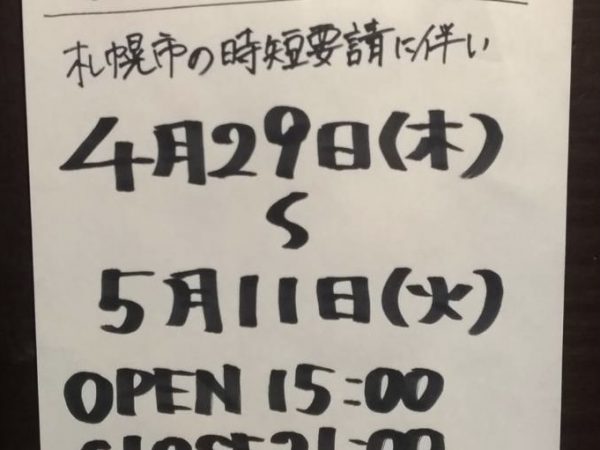 札幌市の時短要請に伴い
4月29日(木)
〜
5月11日(火)
OPEN 15:00
CLOSE 21:00